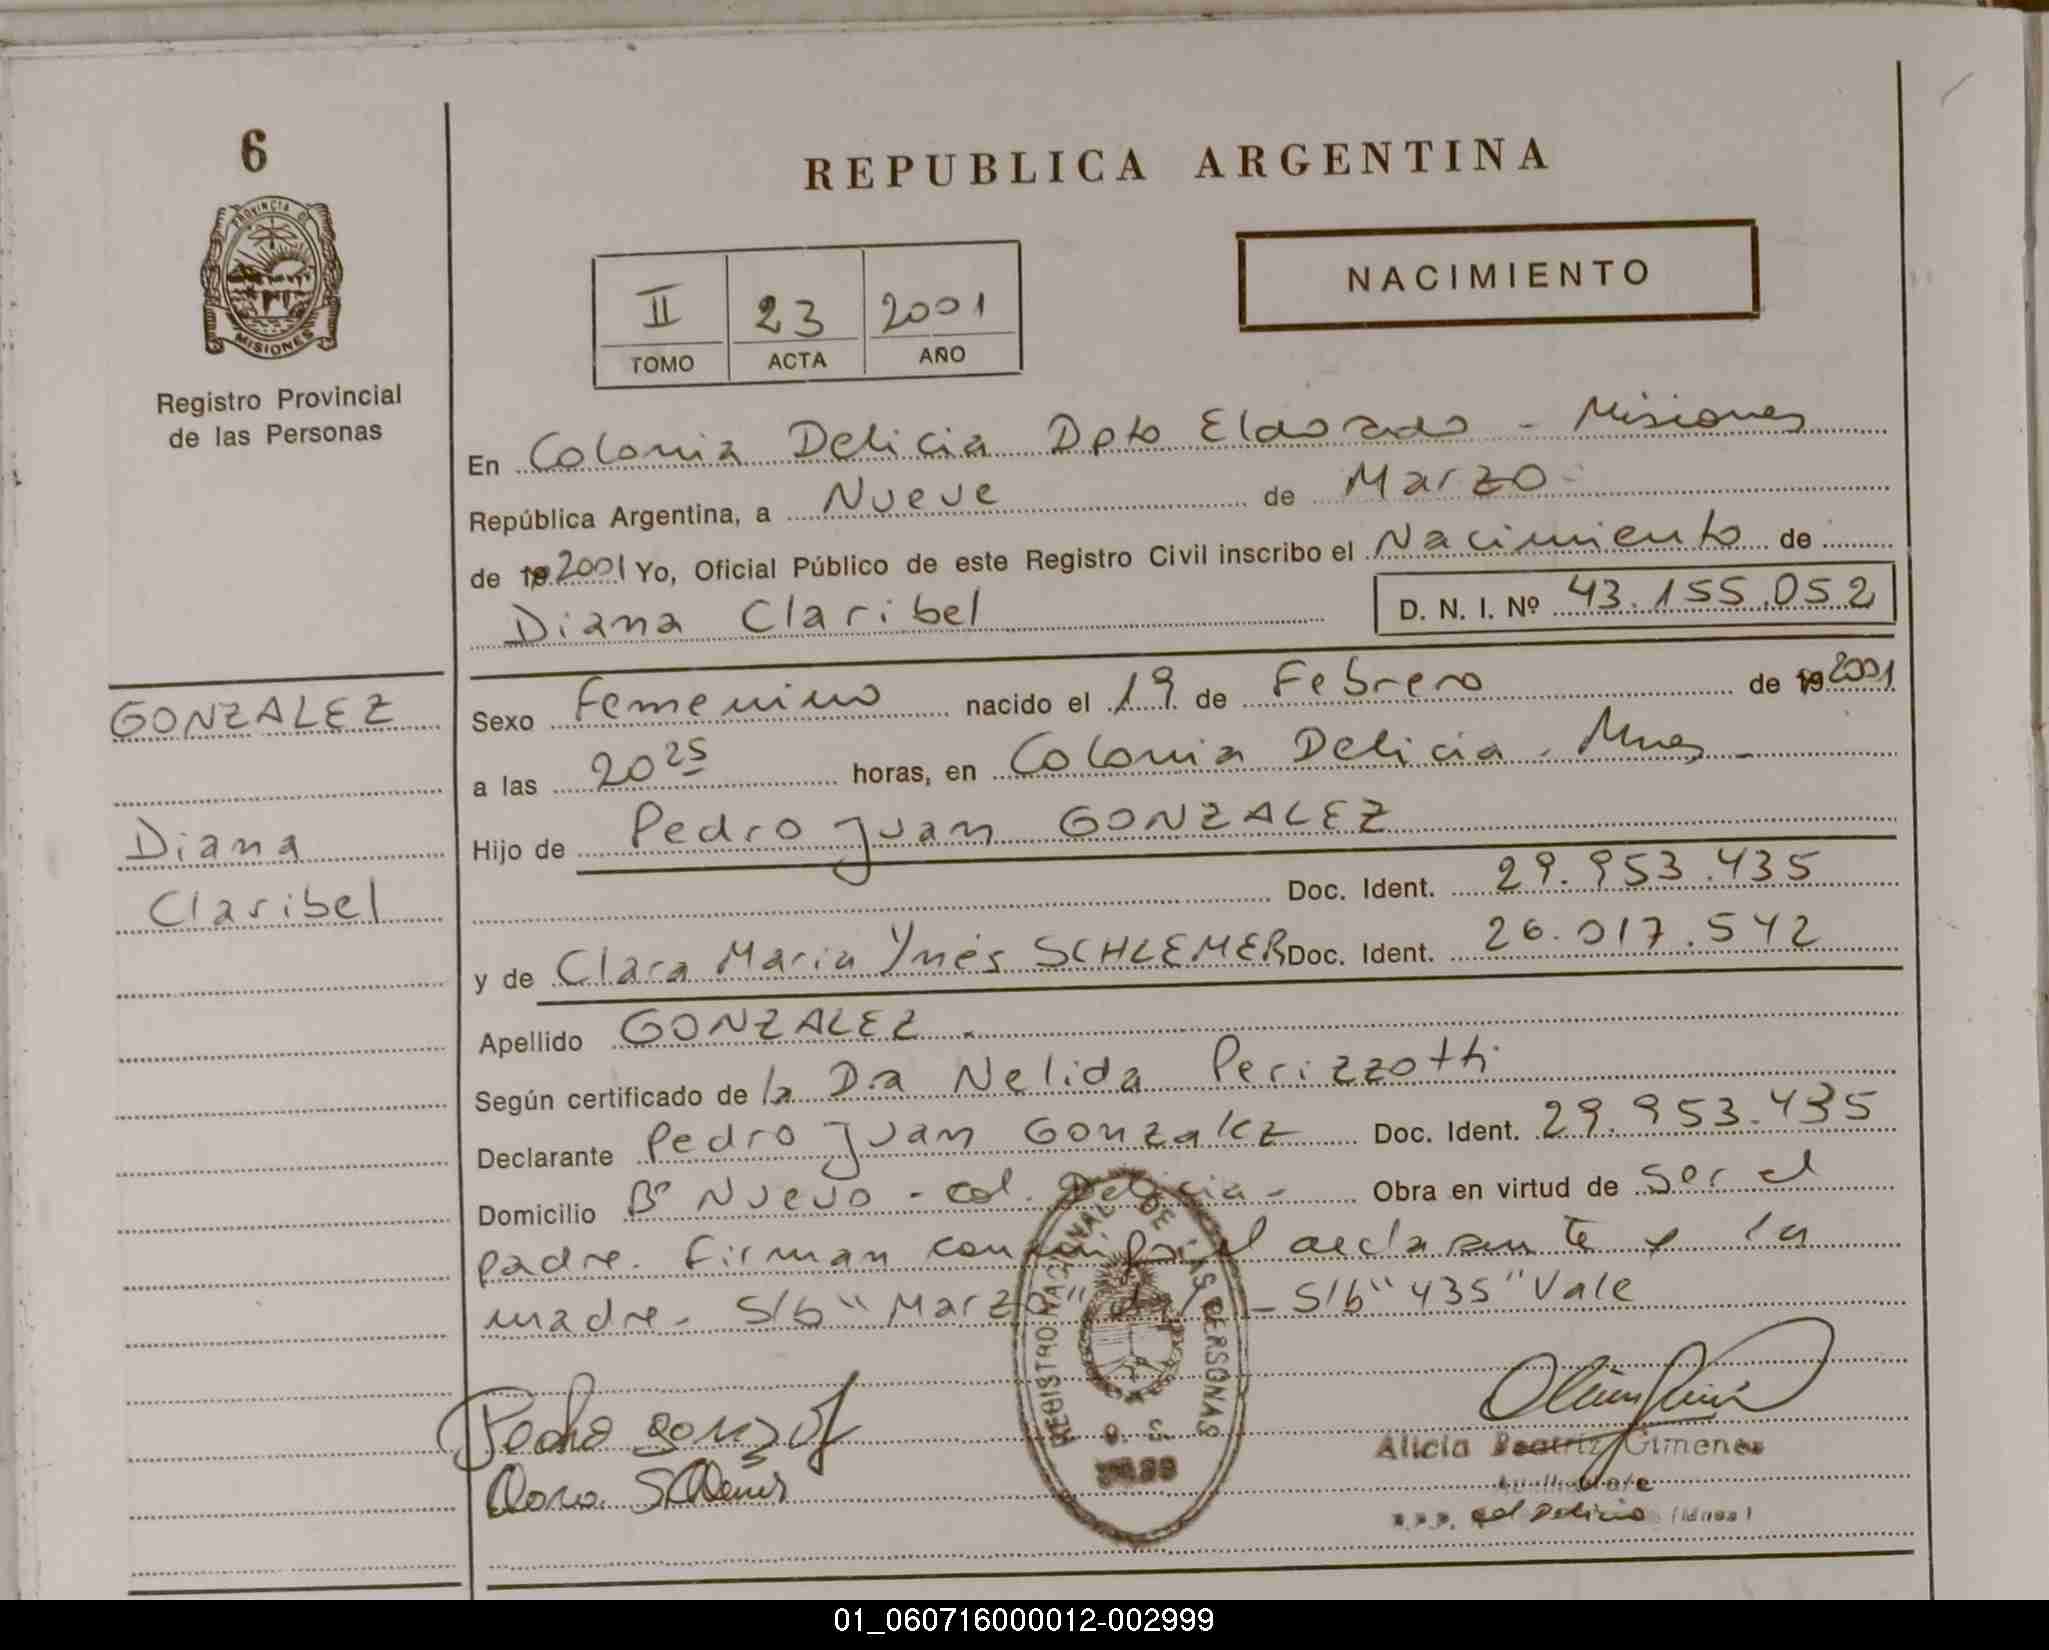 6
REPUBLICA ARGENTINA
PROVINCIA DE
MISIONES
NACIMIENTO
II 23 2001
TOMO ACTA AÑO
Registro Provincial
de las Personas
En Colonia Delicia Dpto Eldorado - Misiones
República Argentina, a Nueve de Marzo
de 19 2001 Yo, Oficial Público de este Registro Civil inscribo el Nacimiento de
Diana Claribel D. N. I. Nº 43.155.052
GONZALEZ
Diana
Claribel
Sexo Femenino nacido el 19 de Febrero de 19 2001
a las 20 25 horas, en Colonia Delicia - Mnes -
Hijo de Pedro Juan GONZALEZ
Doc. Ident. 29.953.435
y de Clara Maria Ynés SCHLEMER Doc. Ident. 26.017.542
Apellido GONZALEZ.
Según certificado de la Dra Nelida Perizzotti
Declarante Pedro Juan Gonzalez Doc. Ident. 29.953.435
Domicilio Bº Nuevo - Col. Delicia - Obra en virtud de ser el
padre. Firman conmigo el declarante y la
madre - S/b "Marzo" - S/b "435" Vale
REGISTRO NACIONAL DE LAS PERSONAS
Pedro
Alicia Beatriz Gimenez
Col Delicia (Mnes)
01_060716000012-002999